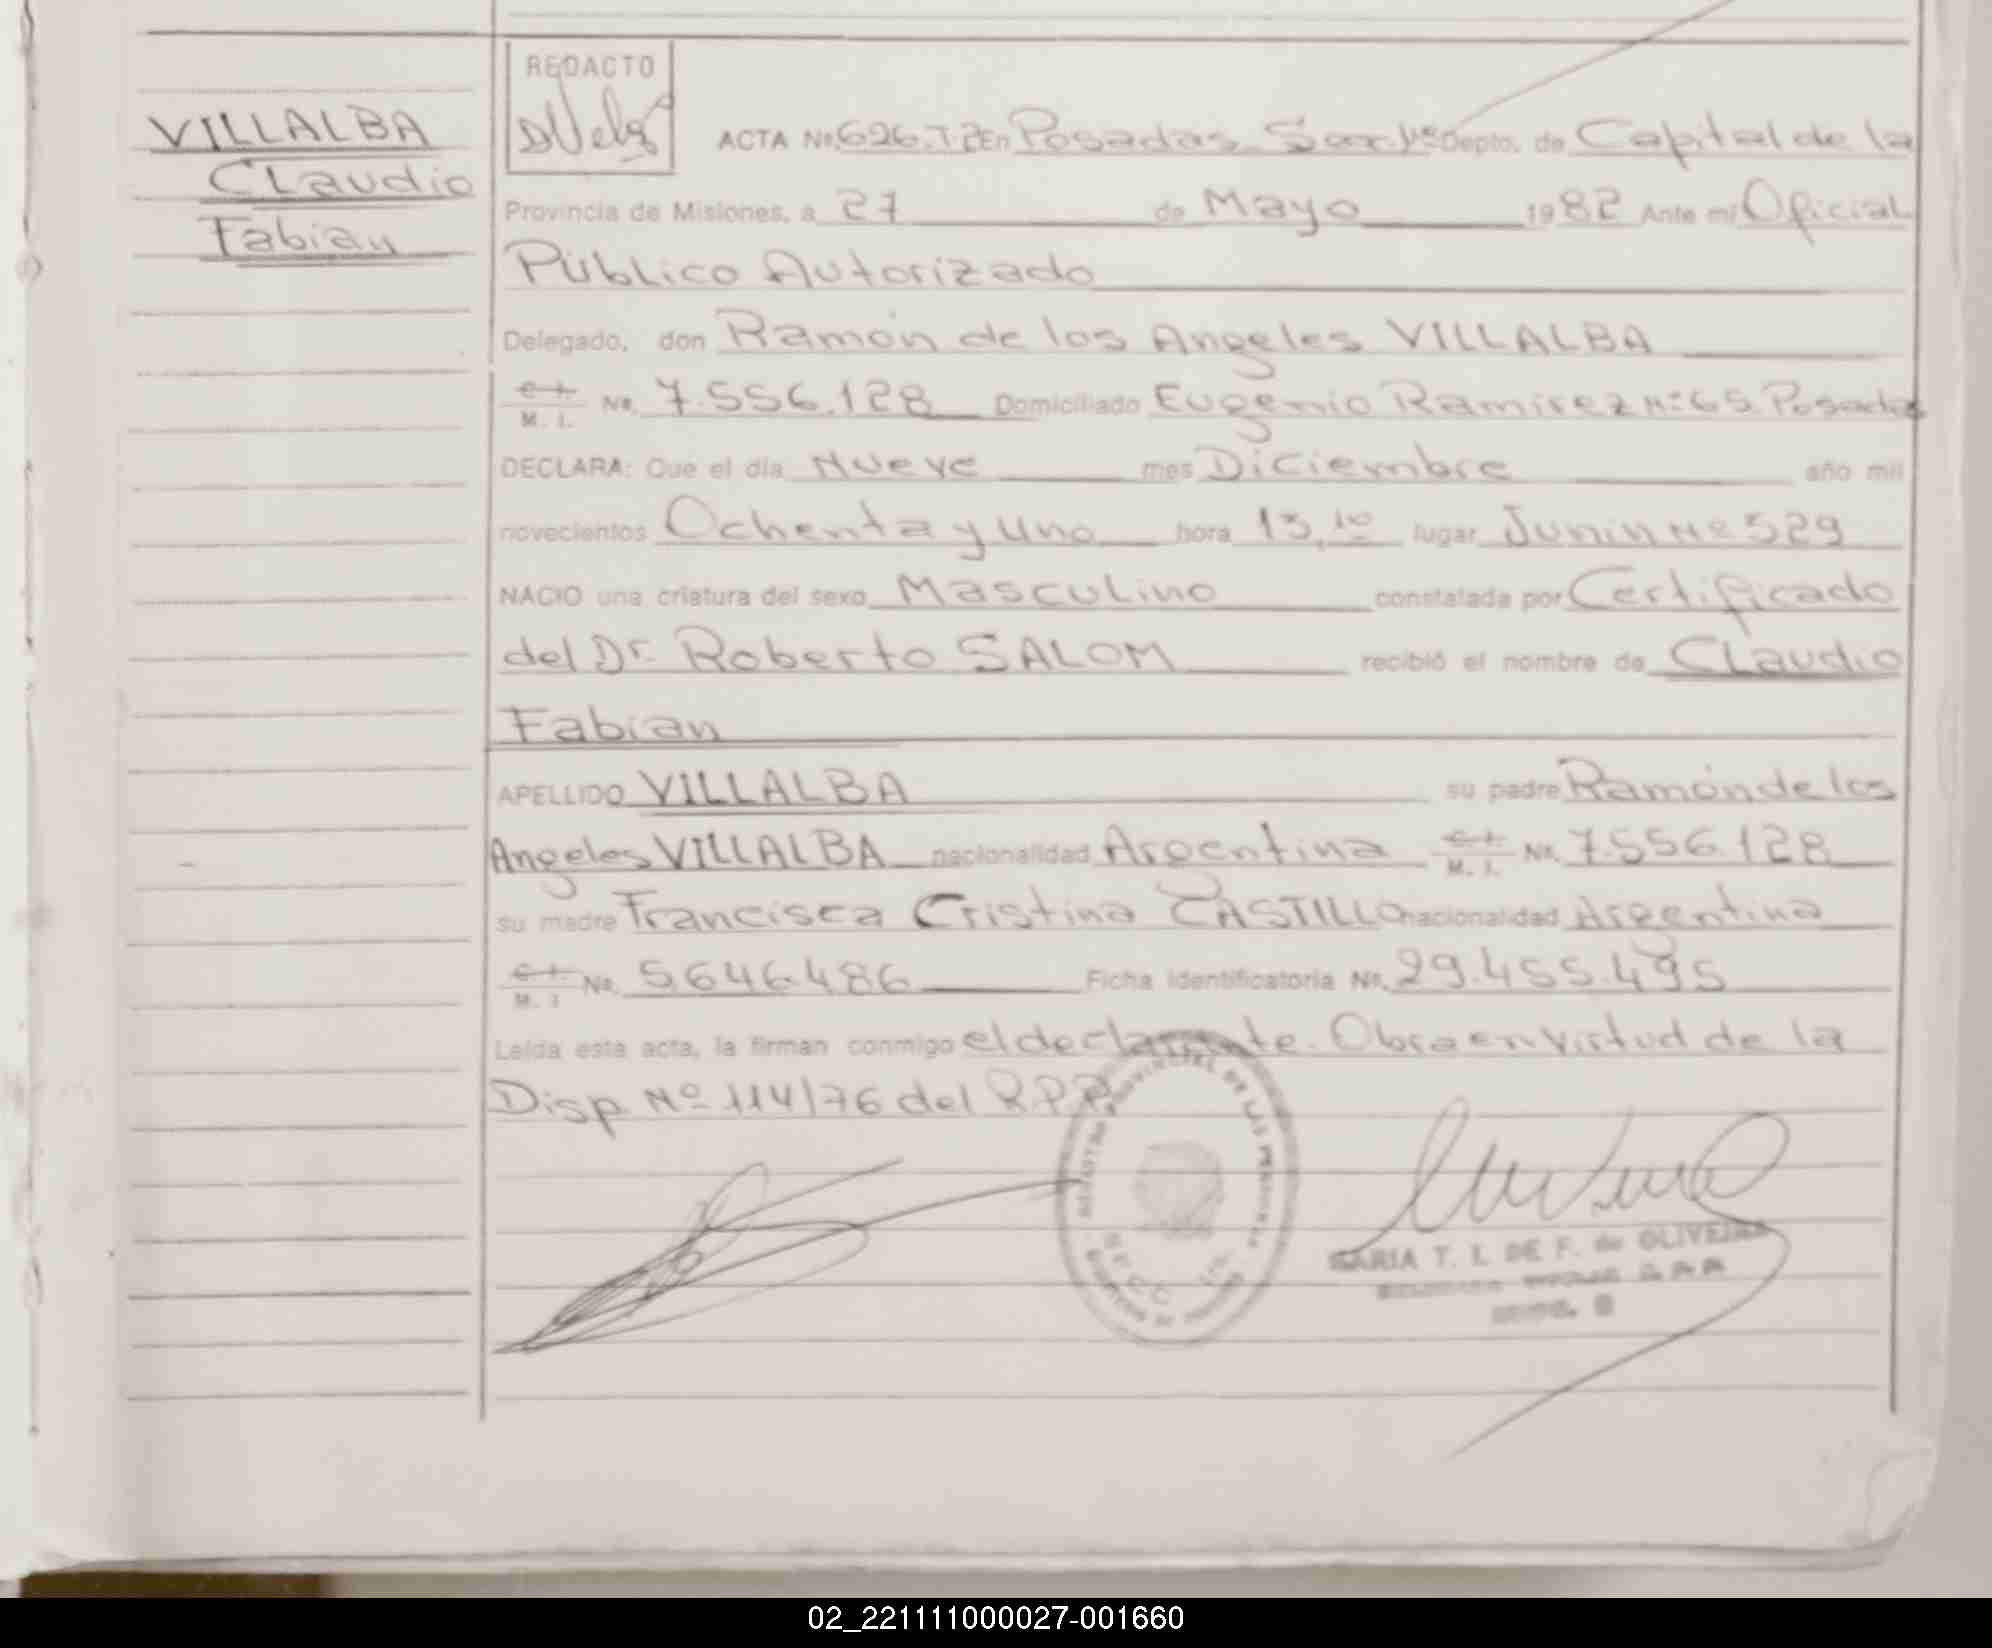 REDACTO
VILLALBA
Claudio
Fabian
ACTA Nº 626.T.2 En Posadas Depto. de Capital de la
Provincia de Misiones, a 27 de Mayo 1982 Ante mi Oficial
Público Autorizado
Delegado, don Ramón de los Angeles VILLALBA
C. I.
M. I. Nº. 7.556.128 Domiciliado Eugenio Ramirez Nº 65 Posadas
DECLARA: Que el día Nueve mes Diciembre año mil
novecientos Ochenta y Uno hora 13,10 lugar Junin Nº 529
NACIO una criatura del sexo Masculino constatada por Certificado
del Dr. Roberto SALOM recibió el nombre de Claudio
Fabian
APELLIDO VILLALBA su padre Ramón de los
Angeles VILLALBA nacionalidad Argentina C. I.
M. I. Nº. 7.556.128
su madre Francisca Cristina CASTILLO nacionalidad Argentina
C. I.
M. I. Nº. 5.646.486 Ficha identificatoria Nº. 29.455.495
Leída esta acta, la firman conmigo el declarante. Obra en virtud de la
Disp. Nº 114/76 del R.P.P.
MARIA T. I. DE F. de OLIVEIRA
02_221111000027-001660